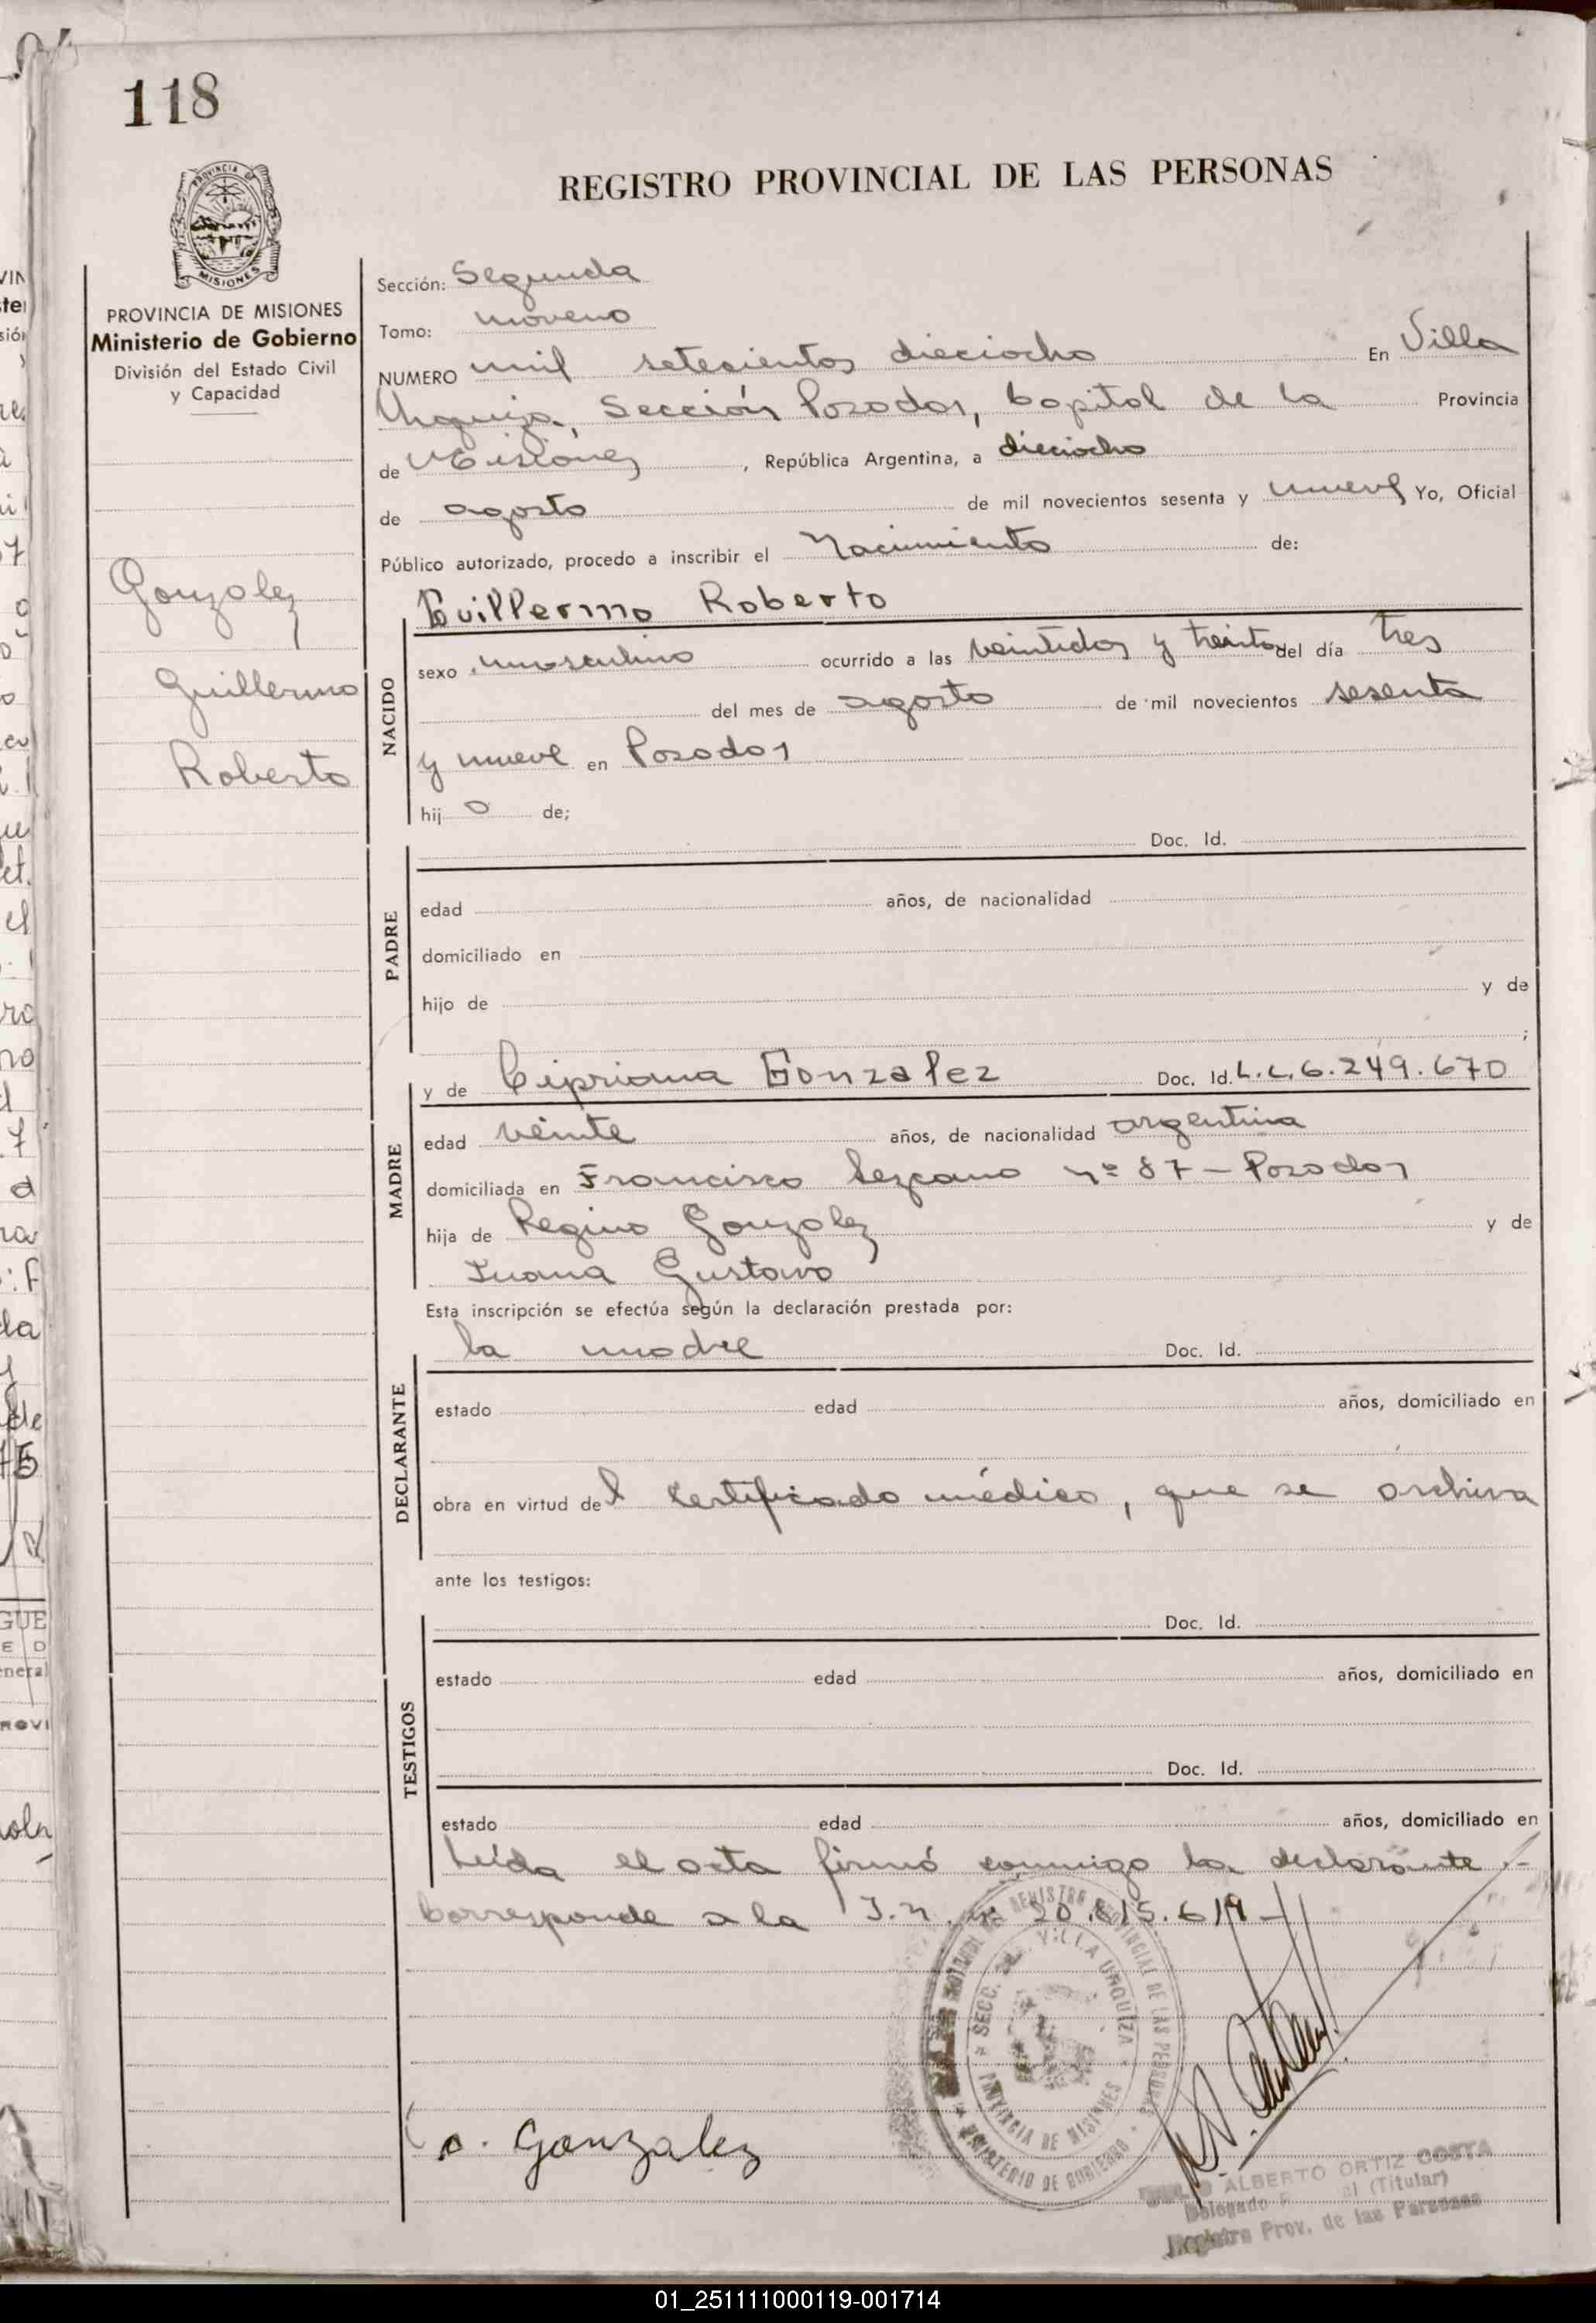 118
PROVINCIA DE
MISIONES
REGISTRO PROVINCIAL DE LAS PERSONAS
PROVINCIA DE MISIONES
Ministerio de Gobierno
División del Estado Civil
y Capacidad
Gonzalez
Guillermo
Roberto
Sección: Segunda
Tomo: noveno
NUMERO mil setecientos dieciocho En Villa
Urquiza, Sección Posadas, Capital de la Provincia
de Misiones, República Argentina, a dieciocho
de agosto de mil novecientos sesenta y nueve Yo, Oficial
Público autorizado, procedo a inscribir el Nacimiento de:
NACIDO
Guillermo Roberto
sexo masculino ocurrido a las veintidos y treinta del día tres
del mes de agosto de mil novecientos sesenta
y nueve en Posadas
hij o de;
PADRE
Doc. Id.
edad años, de nacionalidad
domiciliado en
hijo de y de
;
MADRE
y de Cipriana Gonzalez Doc. Id. L.C. 6.249.670
edad veinte años, de nacionalidad argentina
domiciliada en Francisco Lezcano nº 87 - Posadas
hija de Regino Gonzalez y de
Juana Gustavo
Esta inscripción se efectúa según la declaración prestada por:
DECLARANTE
la madre Doc. Id.
estado edad años, domiciliado en
obra en virtud del certificado médico, que se archiva
ante los testigos:
TESTIGOS
Doc. Id.
estado edad años, domiciliado en
Doc. Id.
estado edad años, domiciliado en
Leída el acta firmó conmigo la declarante .-
Corresponde a la I.N. nº 20.615.619 -
REGISTRO PROVINCIAL DE LAS PERSONAS
MINISTERIO DE GOBIERNO
SECC. 2a. VILLA URQUIZA
PROVINCIA DE MISIONES
C. Gonzalez
ALBERTO ORTIZ COSTA
Delegado (Titular)
Registro Prov. de las Personas
01_251111000119-001714